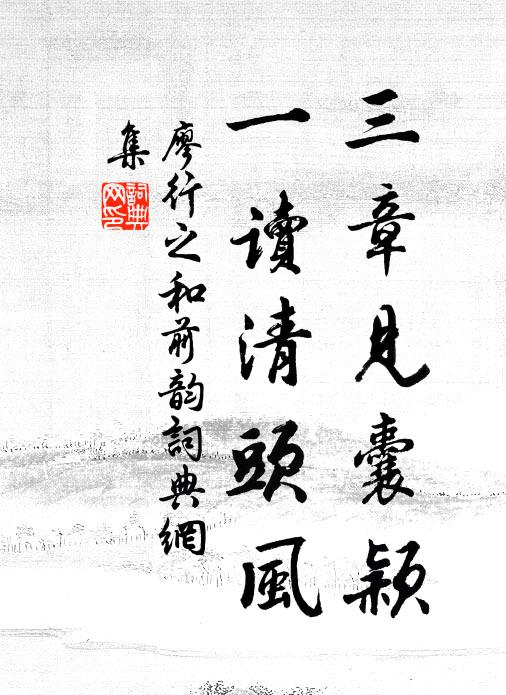 三章見囊穎
一讀清頭風
廖行之和前韵詞典網
集
詞典
网印